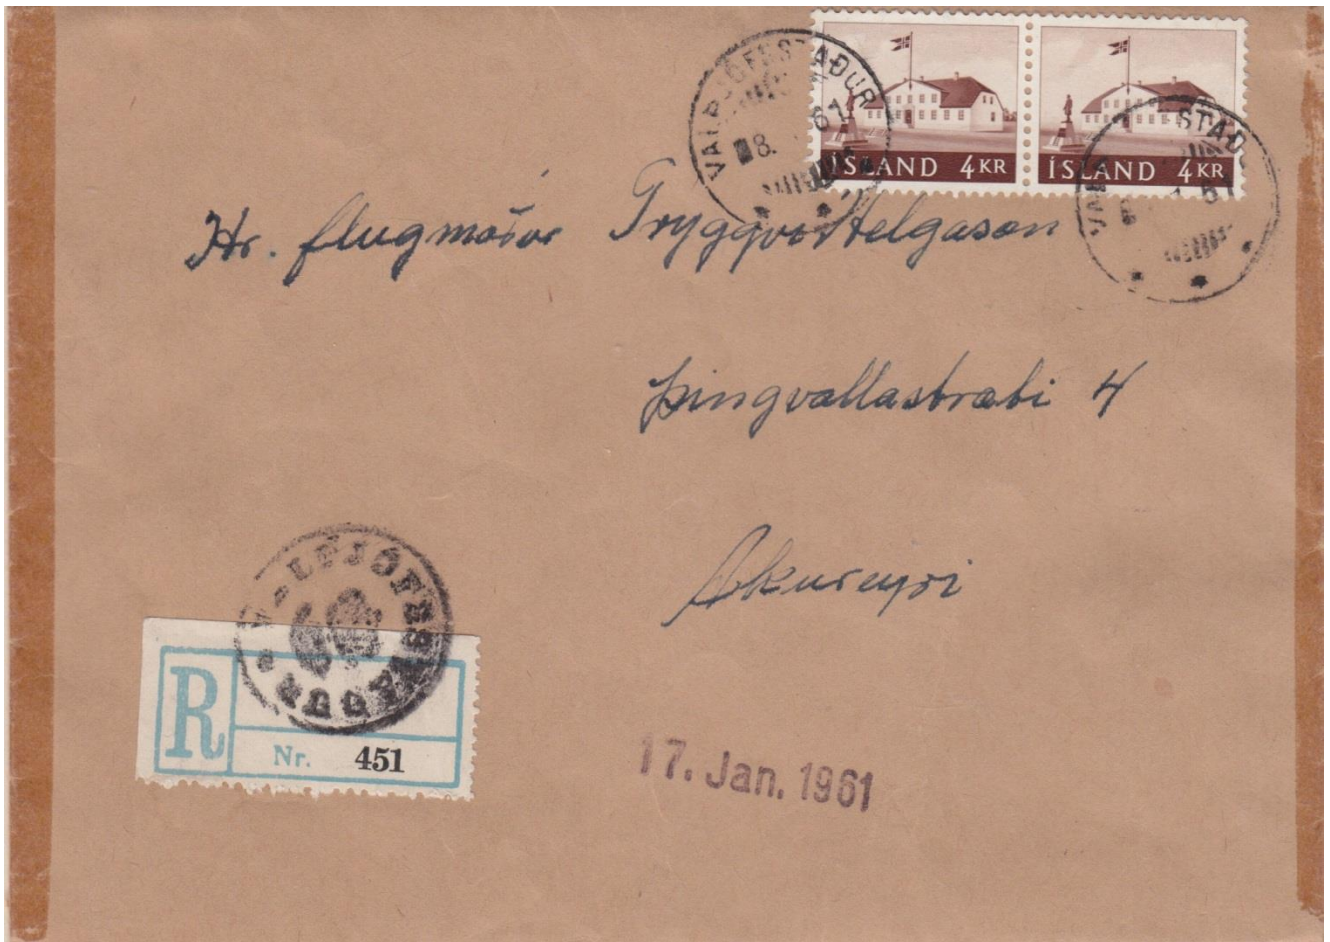 VALÞJÓFSSTAÐUR
8. 61
ÍSLAND 4 KR
ÍSLAND 4 KR
STAÐU
61
Hr. flugmaður Tryggvi Helgason
Þingvallastræti 4
Akureyri
VALÞJÓFSSTAÐUR
R
Nr. 451
17. Jan. 1961